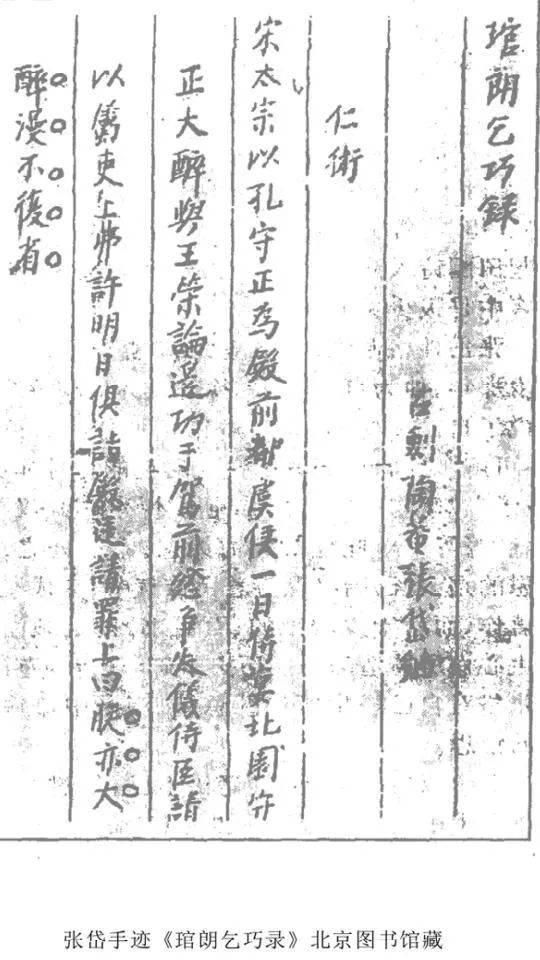 琯朗乞巧録
古劍陶菴張岱
仁術
宋太宗以孔守正為殿前都虞侯一日侍宴北園守
正大醉與王榮論邊功于駕前忿争失儀侍臣請
以屬吏上弗許明日俱詣殿廷請罪上曰朕亦大
醉漫不復省
张岱手迹《琯朗乞巧录》北京图书馆藏